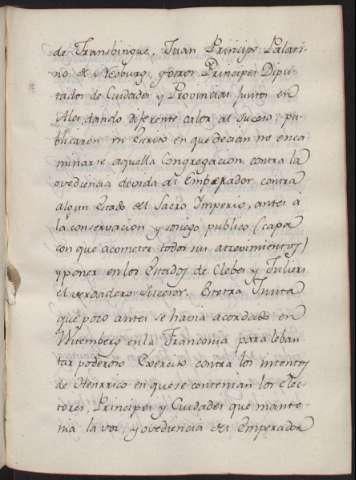 de Transbingue, Juan Principe Palati-
no de Neoburg, y otros Principes Dipu-
tados de Ciudades y Provincias juntos en
Ale, dando diferente calor al suceso; pu-
blicaron un Escrito en que decian no enca-
minarse aquella Congregacion contra la
ovediencia devida al Emperador, contra
algun Estado del Sacro Imperio, antes a
la conservacion y sosiego publico (capa
con que acometer todos sus atrevimientos)
y poner en los Estados de Cleves y Juliers
el verdadero sucesor. En otra Junta
que poco antes se havia acordado en
Witemberg en la Franconia para leban-
tar poderoso Exercito contra los intentos
de Henrrico en que se contenian los Elec-
tores, Principes y Ciudades que mante-
nia la voz y ovediencia del Emperador